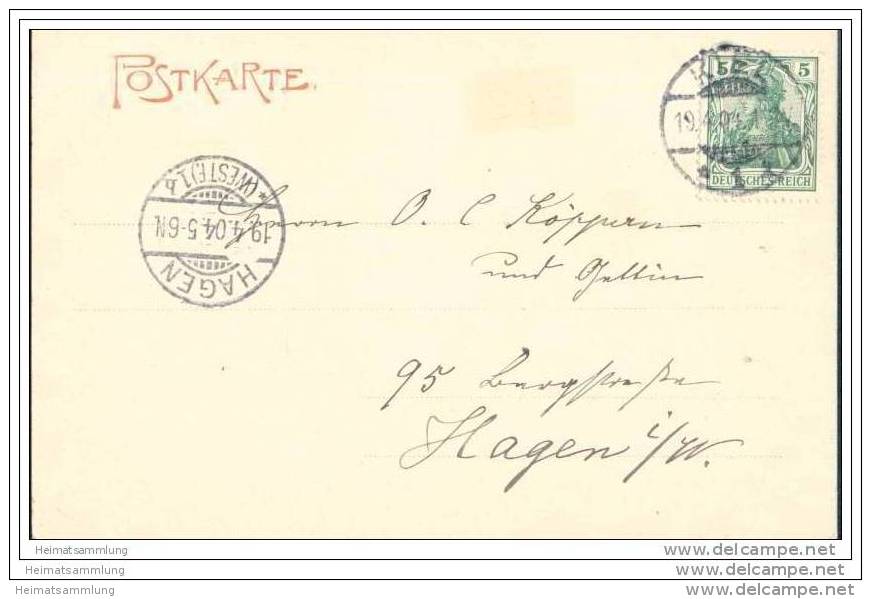 POSTKARTE.
5 5
KIEL
19.4.04
* 1 b
DEUTSCHES REICH
* (WESTF.) 1 b
19.4.04.5-6N
HAGEN
Herrn O. C Köppern
und Gattin
95 Bergstraße
Hagen i/W.
Heimatsammlung
www.delcampe.net
Heimatsammlung
www.delcampe.net
Heimatsammlung
www.delcampe.net